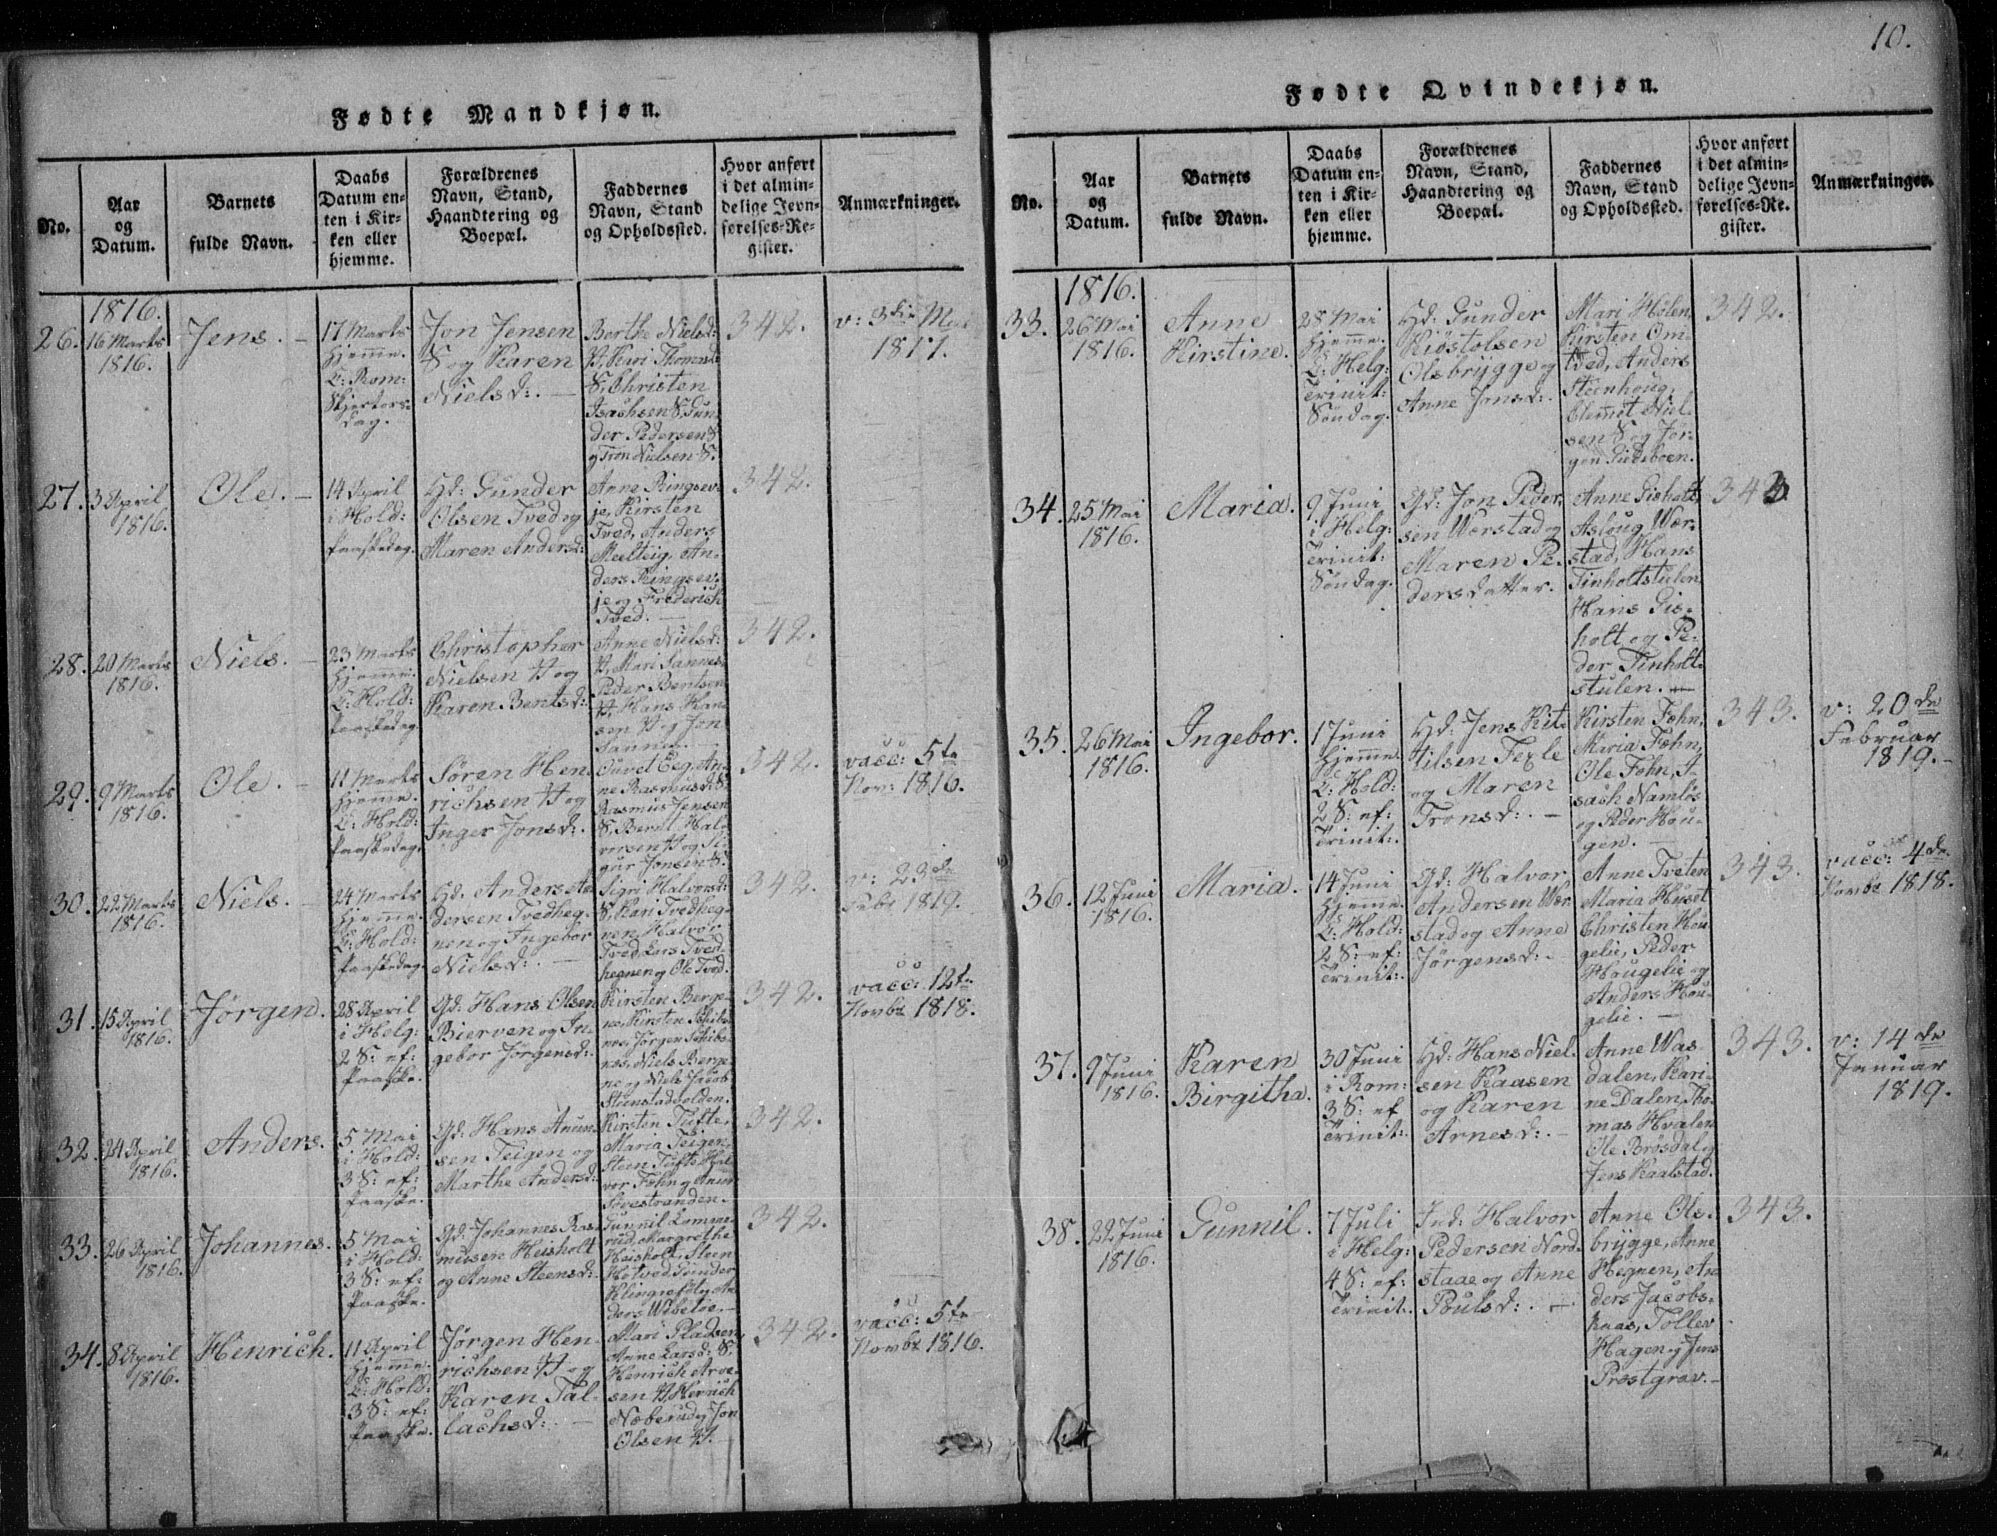 10.
Fødte Mandkjøn.
No.
Aar
og
Datum.
Barnets
fulde Navn.
Daabs
Datum en-
ten i Kir-
ken eller
hjemme.
Forældrenes
Navn, Stand,
Haandtering og
Boepæl.
Faddernes
Navn, Stand
og Opholdssted.
Hvor anført
i det almin-
delige Jevn-
førelses-Re-
gister.
Anmærkninger.
1816.
26.
16 Marts
1816.
Jens.
17 Marts
hjemme.
Skjertors-
dag.
Jon Jensen
S og Karen
Nielsd:
Berthe Nielsd:
Christen
Isachsen S, Gun-
der Pedersen S
og Tron Nielsen S.
342.
1817.
27.
3 April
1816.
Ole.
14 April
i Hold:
Paaskedag.
Gunder
Olsen Tved og
Maren Andersd:
Anne Ringsev-
je, Kirsten
Tved, Anders
Meelteig, An-
ders Ringsev-
je og Frederich
Tved.
342.
28.
20 Marts
1816.
Niels.
23 Marts
hjemme.
Hold:
Paaskedag.
Christopher
Nielsen H og
Karen Bentsd:
Anne Nielsd:
H, Mari Sannes,
Peder Bentsen
H, Hans Han-
sen H og Jon
Sannes.
342.
29.
9 Marts
1816.
Ole.
11 Marts
hjemme.
Hold:
Paaskedag.
Søren Hen-
richsen H og
Inger Jonsd:
Gûvet Eeg, An-
ne Rasmusd: S.
Rasmus Jensen
S. Bernt Hal-
vorsen H og Si-
gur Jonsen S.
342.
vacc: 5te
Nov: 1816.
30.
22 Marts
1816.
Niels.
24 Marts
hjemme.
Hold:
Paaskedag.
Anders An-
dersen Tvedheg-
nen og Ingebor
Nielsd:
Sigri Halvorsd:
S. Kari Tvedheg-
nen, Halvor
Tved, Lars Tved-
hegnen og Ole Tved.
342.
v: 23de
Febr 1819.
31.
15 April
1816.
Jørgen.
28 April
i Helg:
2 S: ef:
Paaske.
Gd: Hans Olsen
Bierven og In-
gebor Jørgensd:
Kirsten Berge-
ne, Kirsten Schibs-
næs, Jørgen Schibs-
næs, Niels Berge-
ne og Niels Jacob
Steenstadvolden.
342.
vacc: 12te
Novbr 1818.
32.
24 April
1816.
Anders.
5 Mai
i Hold:
3 S: ef:
Paaske.
Gd: Hans Anun-
sen Teigen og
Marthe Andersd:
Kirsten Tufte,
Maria Teigen,
Steen Tufte, Hal-
vor Fæhn og Anun
Støestranden.
342.
33.
26 April
1816.
Johannes.
5 Mai
i Hold:
3 S: ef:
Paaske.
Gd: Johannes Ras-
musen Heisholt
og Anne Steensd:
Gunnil Lomme-
rud, Margrethe
Heisholt, Steen
Høtved, Gunder
342.
34.
8 April
1816.
Henrich.
11 April
hjemme.
Hold:
3 S: ef:
Paaske.
Jørgen Hen-
richsen H og
Karen Tal-
lachsd:
Mari Pladsen,
Anne Larsd: S.
Henrich Arve-
sen H, Henrich
Næberud og Jon
Olsen H.
342.
vacc: 5te
Novbr 1816.
Fødte Qvindekjøn.
No.
Aar
og
Datum.
Barnets
fulde Navn.
Daabs
Datum en-
ten i Kir-
ken eller
hjemme.
Forældrenes
Navn, Stand,
Haandtering og
Boepæl.
Faddernes
Navn, Stand
og Opholdssted.
Hvor anført
i det almin-
delige Jevn-
førelses-Re-
gister.
Anmærkninger.
1816.
33.
26 Mai
1816.
Anne
Kirstine.
28 Mai
hjemme.
Helg:
Trinit:
Søndag.
Gunder
Kiøstolsen
Olsbrygge og
Anne Jonsd:
Mari Holen,
Kirsten Om-
tved, Anders
Steenhoug,
Clemet Niel-
sen S og Jør-
gen Gudsboen.
342.
34.
25 Mai
1816.
Maria.
9 Juni
i Helg:
Trinit:
Søndag.
Gd: Jon Peder-
sen Wærstad og
Maren Pe-
dersdatter.
Anne Gisholt,
Asloug Wær-
stad, Hans
Tinholtstulen,
Hans Gis-
holt og Pe-
der Tinholt-
stulen.
343
35.
26 Mai
1816.
Ingebor.
1 Juni
hjemme.
Hold:
2 S: ef:
Trinit:
Jens Kit-
tilsen Texle
og Maren
Tronsd:
Kirsten Fæhn,
Maria Fæhn,
Ole Fæhn, I-
sach Namløs
og Peder Hou-
gen.
343.
v: 20de
Februar
1819.
36.
12 Juni
1816.
Maria.
14 Juni
hjemme.
Hold:
2 S: ef:
Trinit:
Gd: Halvor
Andersen Wær-
stad og Anne
Jørgensd:
Anne Tveten
Maria Huset
Christen Hou-
gelie, Peder
Hougelie og
Anders Hou-
gelie.
343.
vacc: 4de
Novbr 1818.
37.
9 Juni
1816.
Karen
Birgitha.
30 Juni
i Rom:
3 S: ef
Trinit:
Hans Niel-
sen Kaasen
og Karen
Arnesd:
Anne Was-
dalen, Kari-
ne Dalen, Tho-
mas Hvalen
Ole Brøsdal og
Jens Kaalstad.
343.
v: 14de
Januar
1819.
38.
22 Juni
1816.
Gunnil.
7 Juli
i Helg:
4 S: ef:
Trinit:
Ind: Halvor
Pedersen Nord-
staae og Anne
Poulsd:
Anne Ols-
brygge, Anne
Hegnen, An-
ders Jacobs-
kaas, Tollev
Hagen og Jens
Prestgrav.
343.